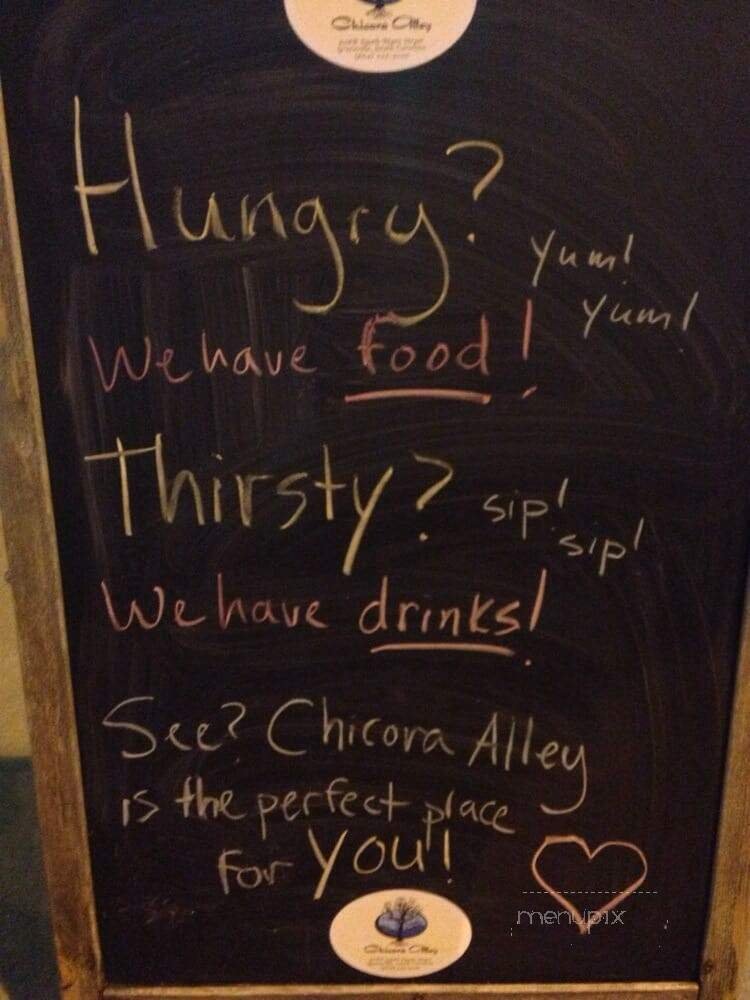 Chicora Alley
Hungry?
Yum!
Yum!
We have food!
Thirsty?
sip!
sip!
We have drinks!
See? Chicora Alley
is the perfect place
for YOU!!
menupix
Chicora Alley